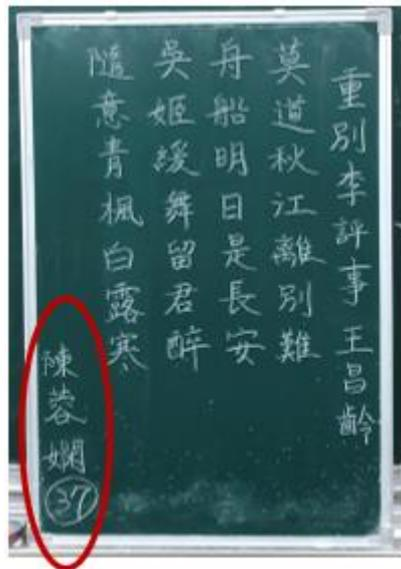 重別李評事 王昌齡
莫道秋江離別難
舟船明日是長安
吳姬緩舞留君醉
隨意青楓白露寒
陳蓉嫻
37